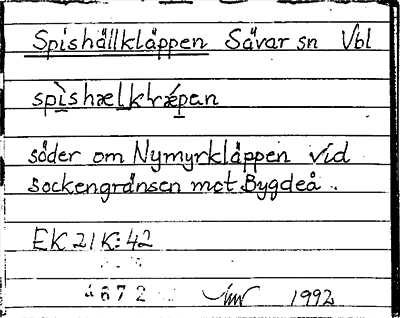 Spishällkläppen Sävar sn Vbl
söder om Nymyrkläppen vid
sockengränsen mot Bygdeå.
EK 21K:42
4672
1992